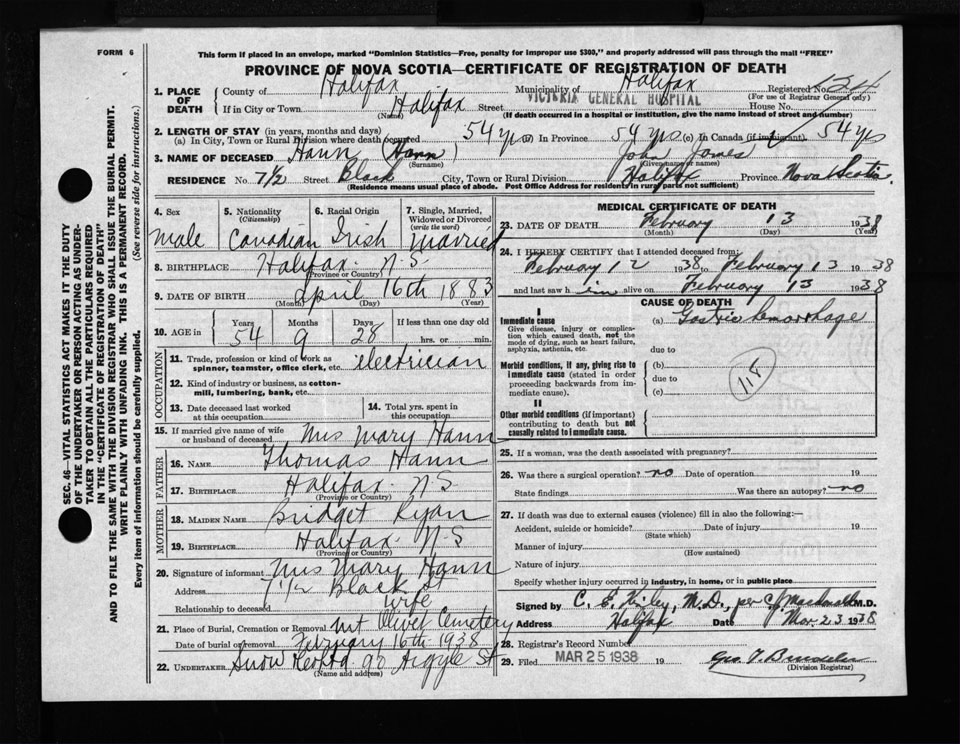 FORM 6
This form if placed in an envelope, marked "Dominion Statistics—Free, penalty for improper use $300," and properly addressed will pass through the mail "FREE"
PROVINCE OF NOVA SCOTIA—CERTIFICATE OF REGISTRATION OF DEATH
1. PLACE OF DEATH County of Halifax Municipality of Halifax Registered No. 134
(For use of Registrar General only)
If in City or Town Halifax Street VICTORIA GENERAL HOSPITAL House No.
(Name) (If death occurred in a hospital or institution, give the name instead of street and number)
2. LENGTH OF STAY (in years, months and days)
(a) In City, Town or Rural Division where death occurred 54 yrs (b) In Province 54 yrs (c) In Canada (if immigrant) 54 yrs
3. NAME OF DECEASED Hann (Hann) John James
(Surname) (Given name or names)
RESIDENCE No. 7 1/2 Street Black City, Town or Rural Division Halifax Province Nova Scotia
(Residence means usual place of abode. Post Office Address for residents in rural parts not sufficient)
4. Sex Male
5. Nationality (Citizenship) Canadian
6. Racial Origin Irish
7. Single, Married, Widowed or Divorced (write the word) Married
8. BIRTHPLACE Halifax N.S.
(Province or Country)
9. DATE OF BIRTH April 16th 1883
(Month) (Day) (Year)
10. AGE in Years 54 Months 9 Days 28 If less than one day old hrs. or min.
OCCUPATION
11. Trade, profession or kind of work as spinner, teamster, office clerk, etc. electrician
12. Kind of industry or business, as cotton-mill, lumbering, bank, etc.
13. Date deceased last worked at this occupation
14. Total yrs. spent in this occupation
15. If married give name of wife or husband of deceased Mrs Mary Hann
FATHER
16. NAME Thomas Hann
17. BIRTHPLACE Halifax N.S
(Province or Country)
MOTHER
18. MAIDEN NAME Bridget Ryan
19. BIRTHPLACE Halifax N-S
(Province or Country)
20. Signature of informant Mrs Mary Hann
Address 7 1/2 Black St
Relationship to deceased wife
21. Place of Burial, Cremation or Removal Mt Olivet Cemetery
Date of burial or removal February 16th 1938
22. UNDERTAKER Snow 90 Argyle St
(Name and address)
MEDICAL CERTIFICATE OF DEATH
23. DATE OF DEATH February 13 1938
(Month) (Day) (Year)
24. I HEREBY CERTIFY that I attended deceased from:
February 12 1938 to February 13 1938
and last saw him alive on February 13 1938
CAUSE OF DEATH
I
Immediate cause
Give disease, injury or complication which caused death, not the mode of dying, such as heart failure, asphyxia, asthenia, etc.
(a) Gastric hemorrhage
due to
Morbid conditions, if any, giving rise to immediate cause (stated in order proceeding backwards from immediate cause).
(b)
due to
(c)
118
II
Other morbid conditions (if important) contributing to death but not causally related to immediate cause.
25. If a woman, was the death associated with pregnancy?
26. Was there a surgical operation? no Date of operation 19
State findings Was there an autopsy? no
27. If death was due to external causes (violence) fill in also the following:—
Accident, suicide or homicide? Date of injury 19
(State which)
Manner of injury
(How sustained)
Nature of injury
Specify whether injury occurred in industry, in home, or in public place
Signed by C. E. M.D., per C. J. Macdonald M.D.
Address Halifax Date Mar. 23 1938
28. Registrar's Record Number
29. Filed MAR 25 1938 19 Geo. T.
(Division Registrar)
SEC. 46—VITAL STATISTICS ACT MAKES IT THE DUTY
OF THE UNDERTAKER OR PERSON ACTING AS UNDER-
TAKER TO OBTAIN ALL THE PARTICULARS REQUIRED
IN THE "CERTIFICATE OF REGISTRATION OF DEATH"
AND TO FILE THE SAME WITH THE DIVISION REGISTRAR WHO SHALL ISSUE THE BURIAL PERMIT.
WRITE PLAINLY WITH UNFADING INK. THIS IS A PERMANENT RECORD.
Every item of information should be carefully supplied. (See reverse side for instructions.)